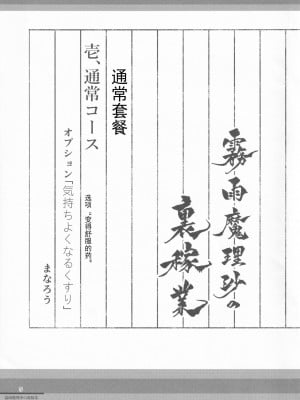 霧雨魔理沙の
裏稼業
通常套餐
壱、通常コース
选项。变得舒服的药。
オプション「気持ちよくなるくすり」
まなろう